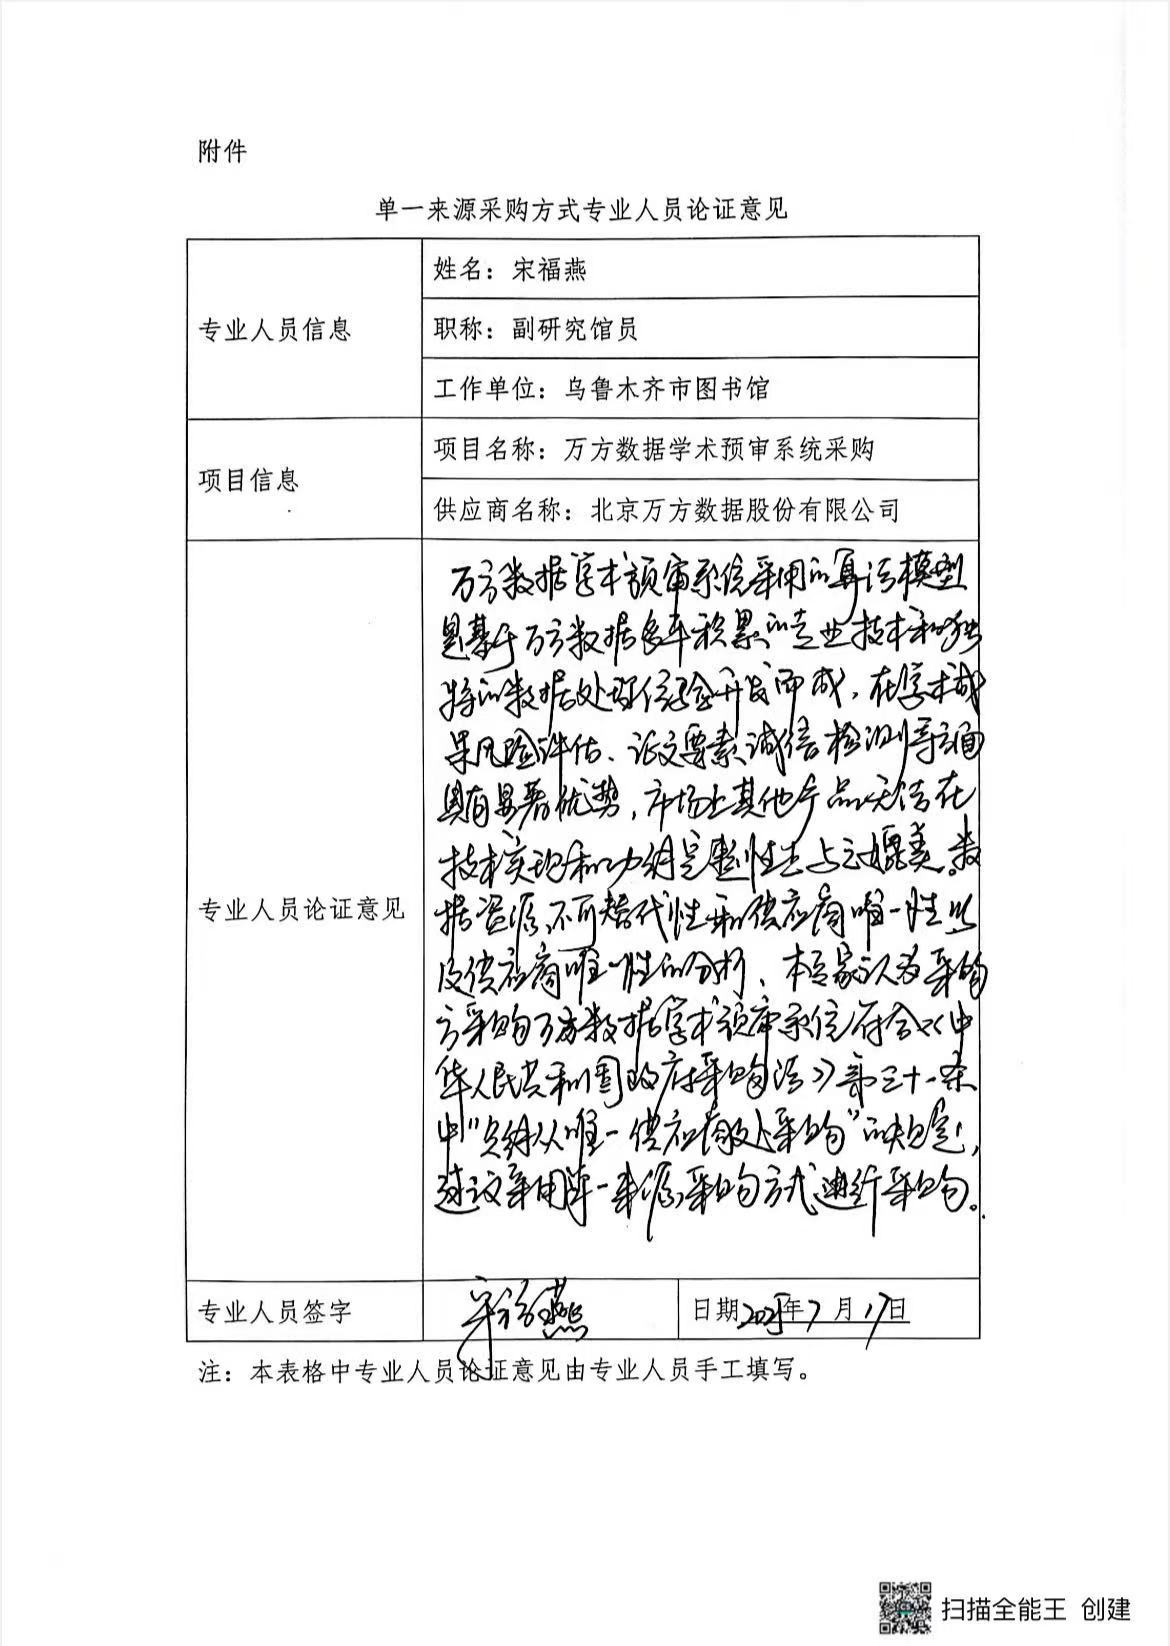 附件
单一来源采购方式专业人员论证意见
专业人员信息
姓名：宋福燕
职称：副研究馆员
工作单位：乌鲁木齐市图书馆
项目信息
项目名称：万方数据学术预审系统采购
供应商名称：北京万方数据股份有限公司
专业人员论证意见
万方数据学术预审系统采用的算法模型
是基于万方数据多年积累的专业技术和独
特的数据处理经验开发而成，在学术成
果风险评估、论文要素诚信检测等方面
具有显著优势，市场上其他产品无法在
技术实现和功能完整性上与之媲美。数
据资源不可替代性和供应商唯一性以
及供应商唯一性的分析，本专家认为采购
方采购万方数据学术预审系统符合《中
华人民共和国政府采购法》第三十一条
中“只能从唯一供应商处采购”的规定，
建议采用单一来源采购方式进行采购。
专业人员签字
宋福燕
日期2025年7月17日
注：本表格中专业人员论证意见由专业人员手工填写。
扫描全能王 创建